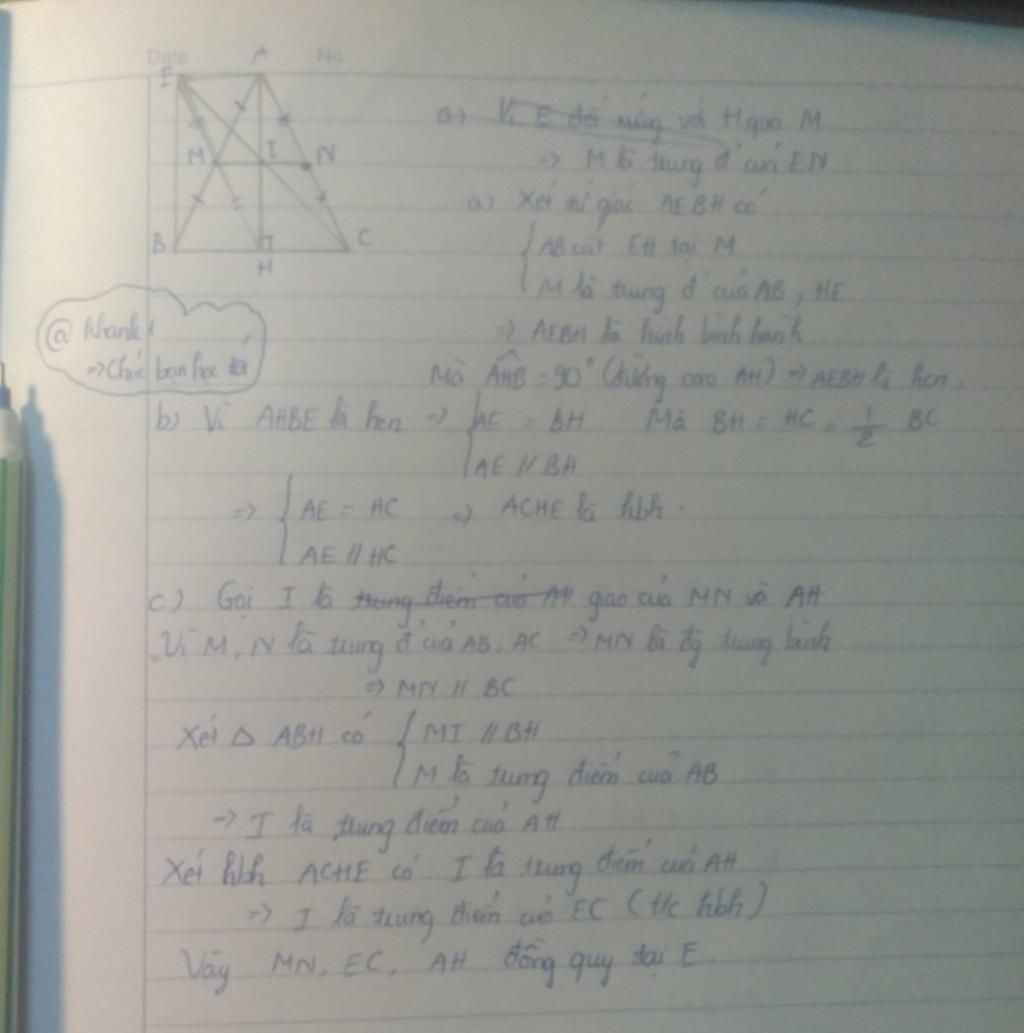 Date No.
E A
M I N
B H C
a) Vì E đối xứng với H qua M
=> M là trung đ' của EN
a) Xét tứ giác AEBH có
AB cắt EH tại M
M là trung đ' của AB, HE
=> AEBH là hình bình hành
Mà AHB = 90° (đường cao AH) => AEBH là hcn.
@ Khanh
=> Chúc bạn học tốt
b) Vì AHBE là hcn => { AE = BH Mà BH = HC = 1/2 BC
AE // BH
=> { AE = HC => ACHE là hbh.
AE // HC
c) Gọi I là trung điểm của AH giao của MN và AH
Vì M, N là trung đ' của AB, AC => MN là đg trung bình
=> MN // BC
Xét Δ ABH có { MI // BH
M là trung điểm của AB
-> I là trung điểm của AH
Xét hbh ACHE có I là trung điểm của AH
=> I là trung điểm của EC (t/c hbh)
Vậy MN, EC, AH đồng quy tại E.